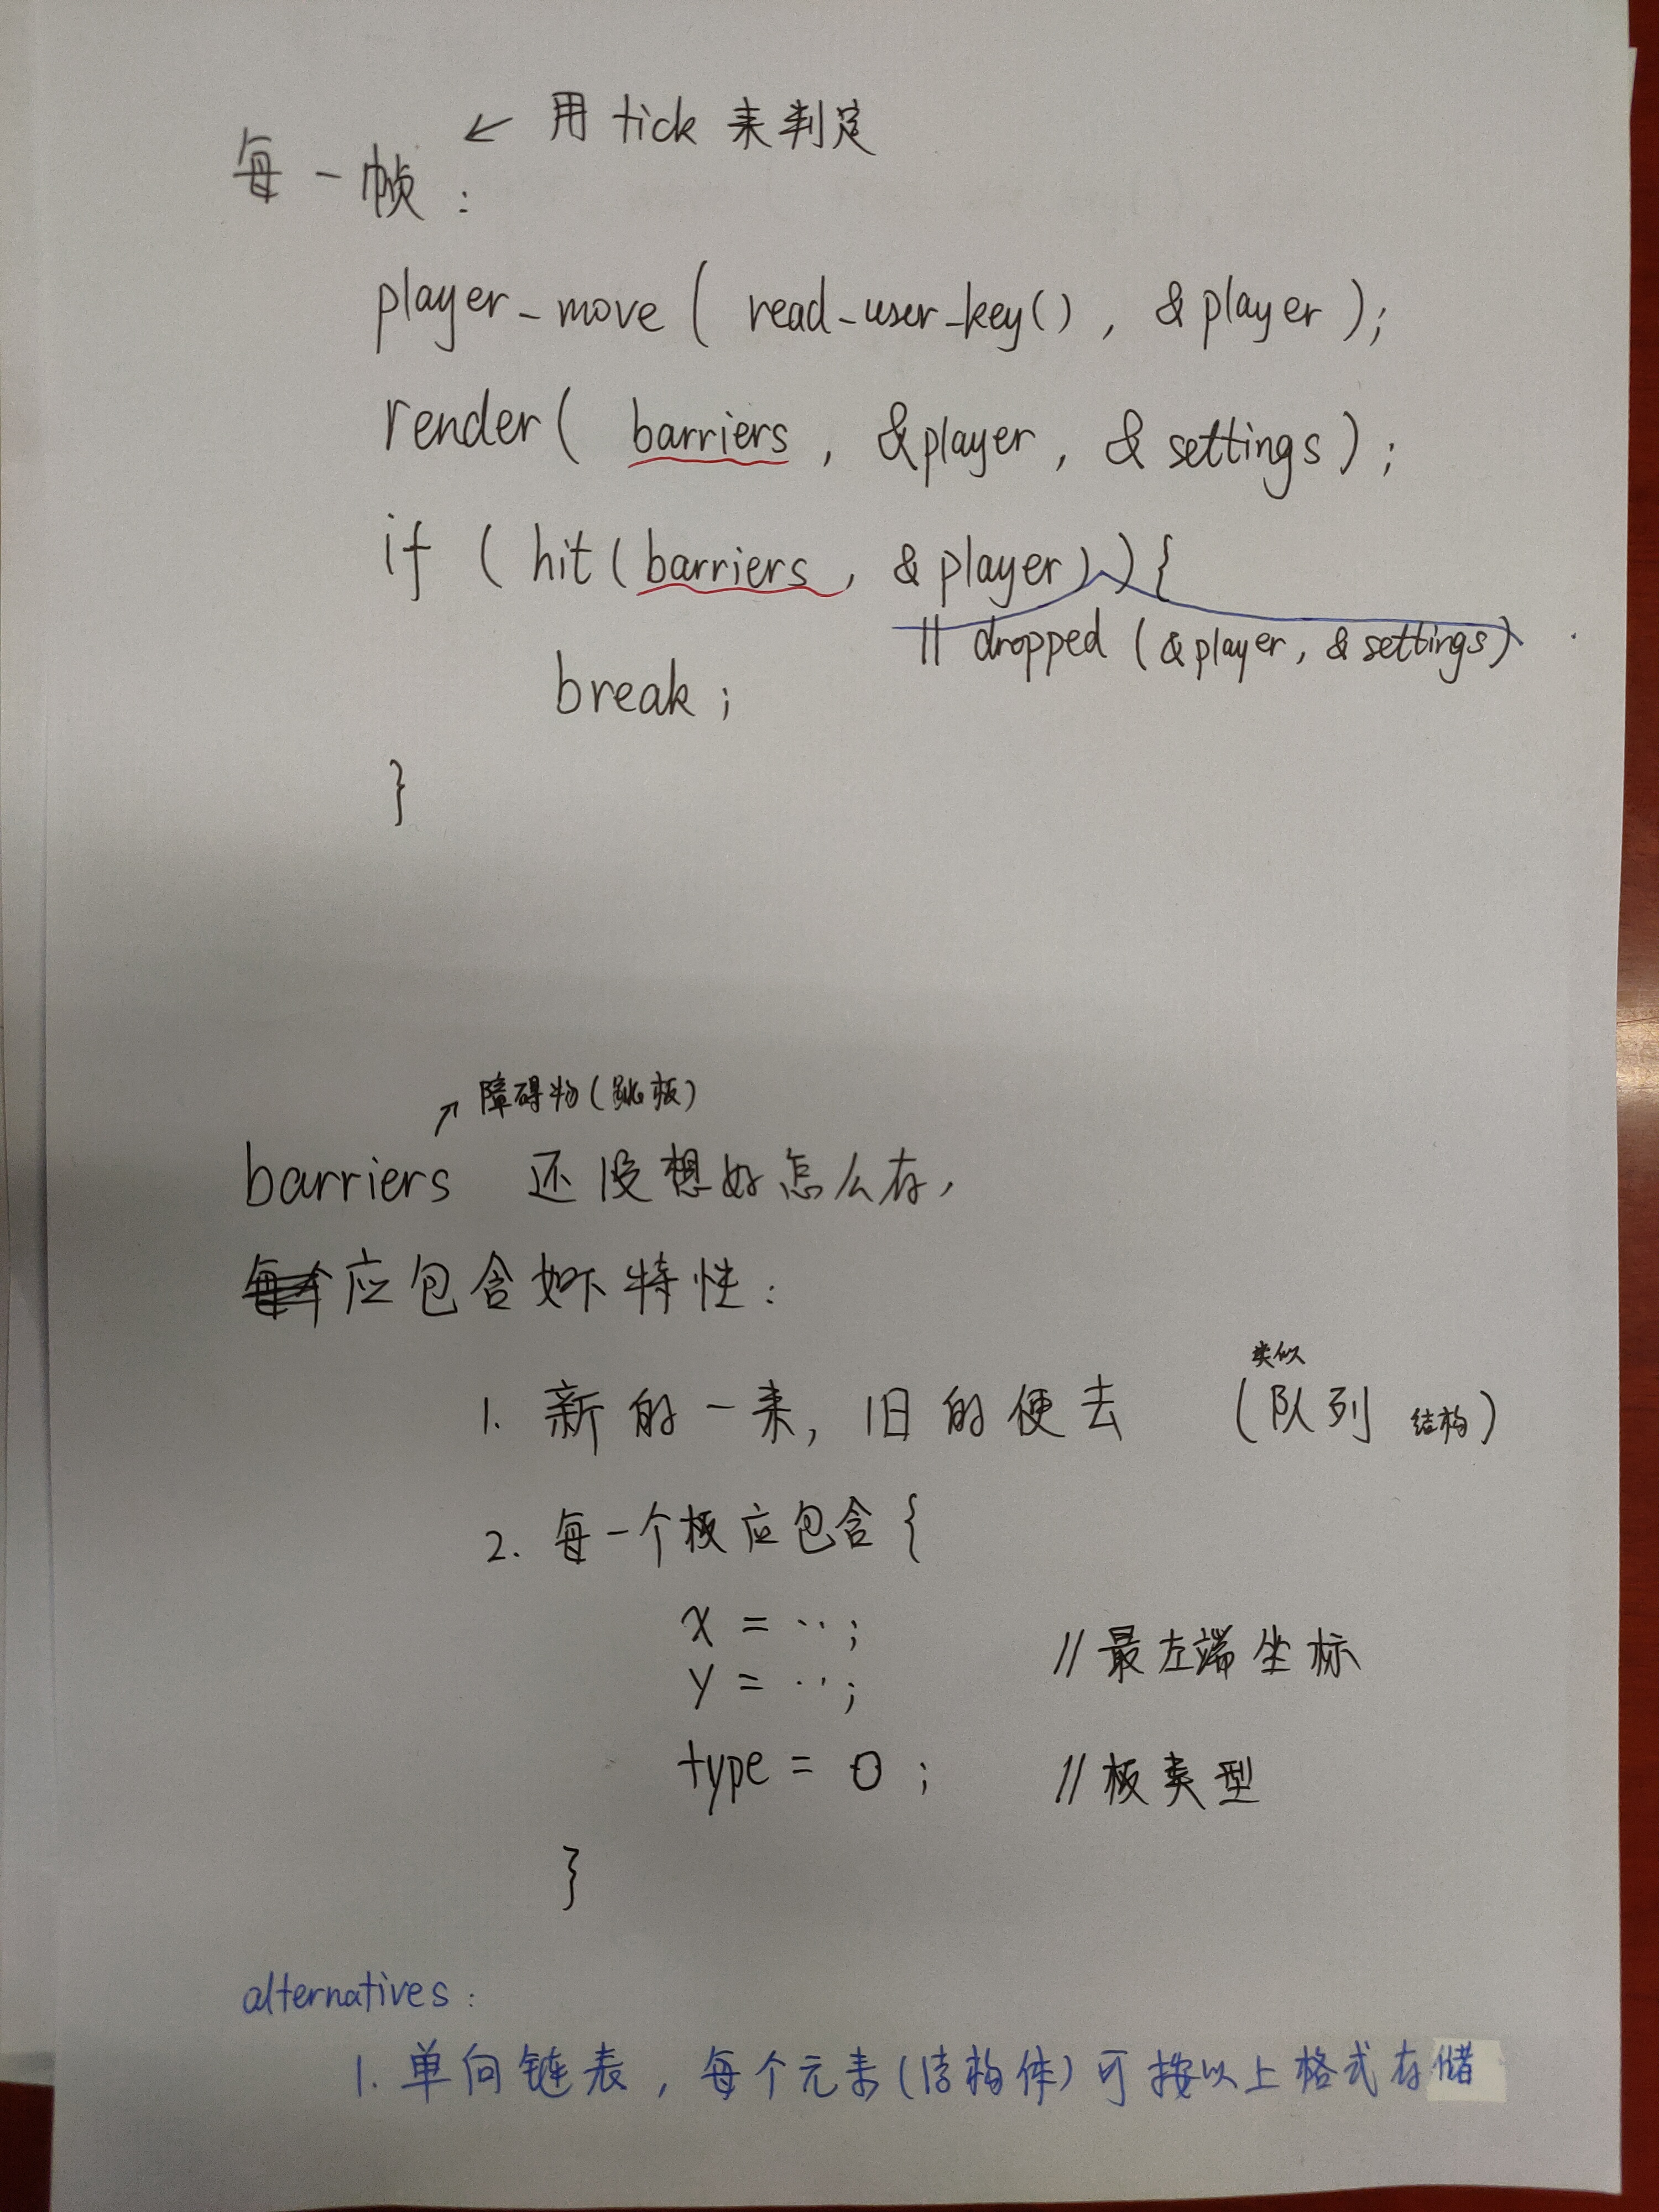 用 tick 来判定
每一帧:
player_move ( read_user_key() , & player );
render ( barriers , &player , & settings ) ;
if ( hit ( barriers , & player ) ) {
|| dropped ( & player , & settings )
break ;
}
障碍物(跳板)
barriers 还没想好怎么存,
应包含如下特性:
1. 新的一来, 旧的便去 (类似队列结构)
2. 每一个板应包含 {
x = ‥ ;
y = ‥ ; // 最左端坐标
type = 0 ; // 板类型
}
alternatives :
1. 单向链表, 每个元素(结构体) 可按以上格式存储